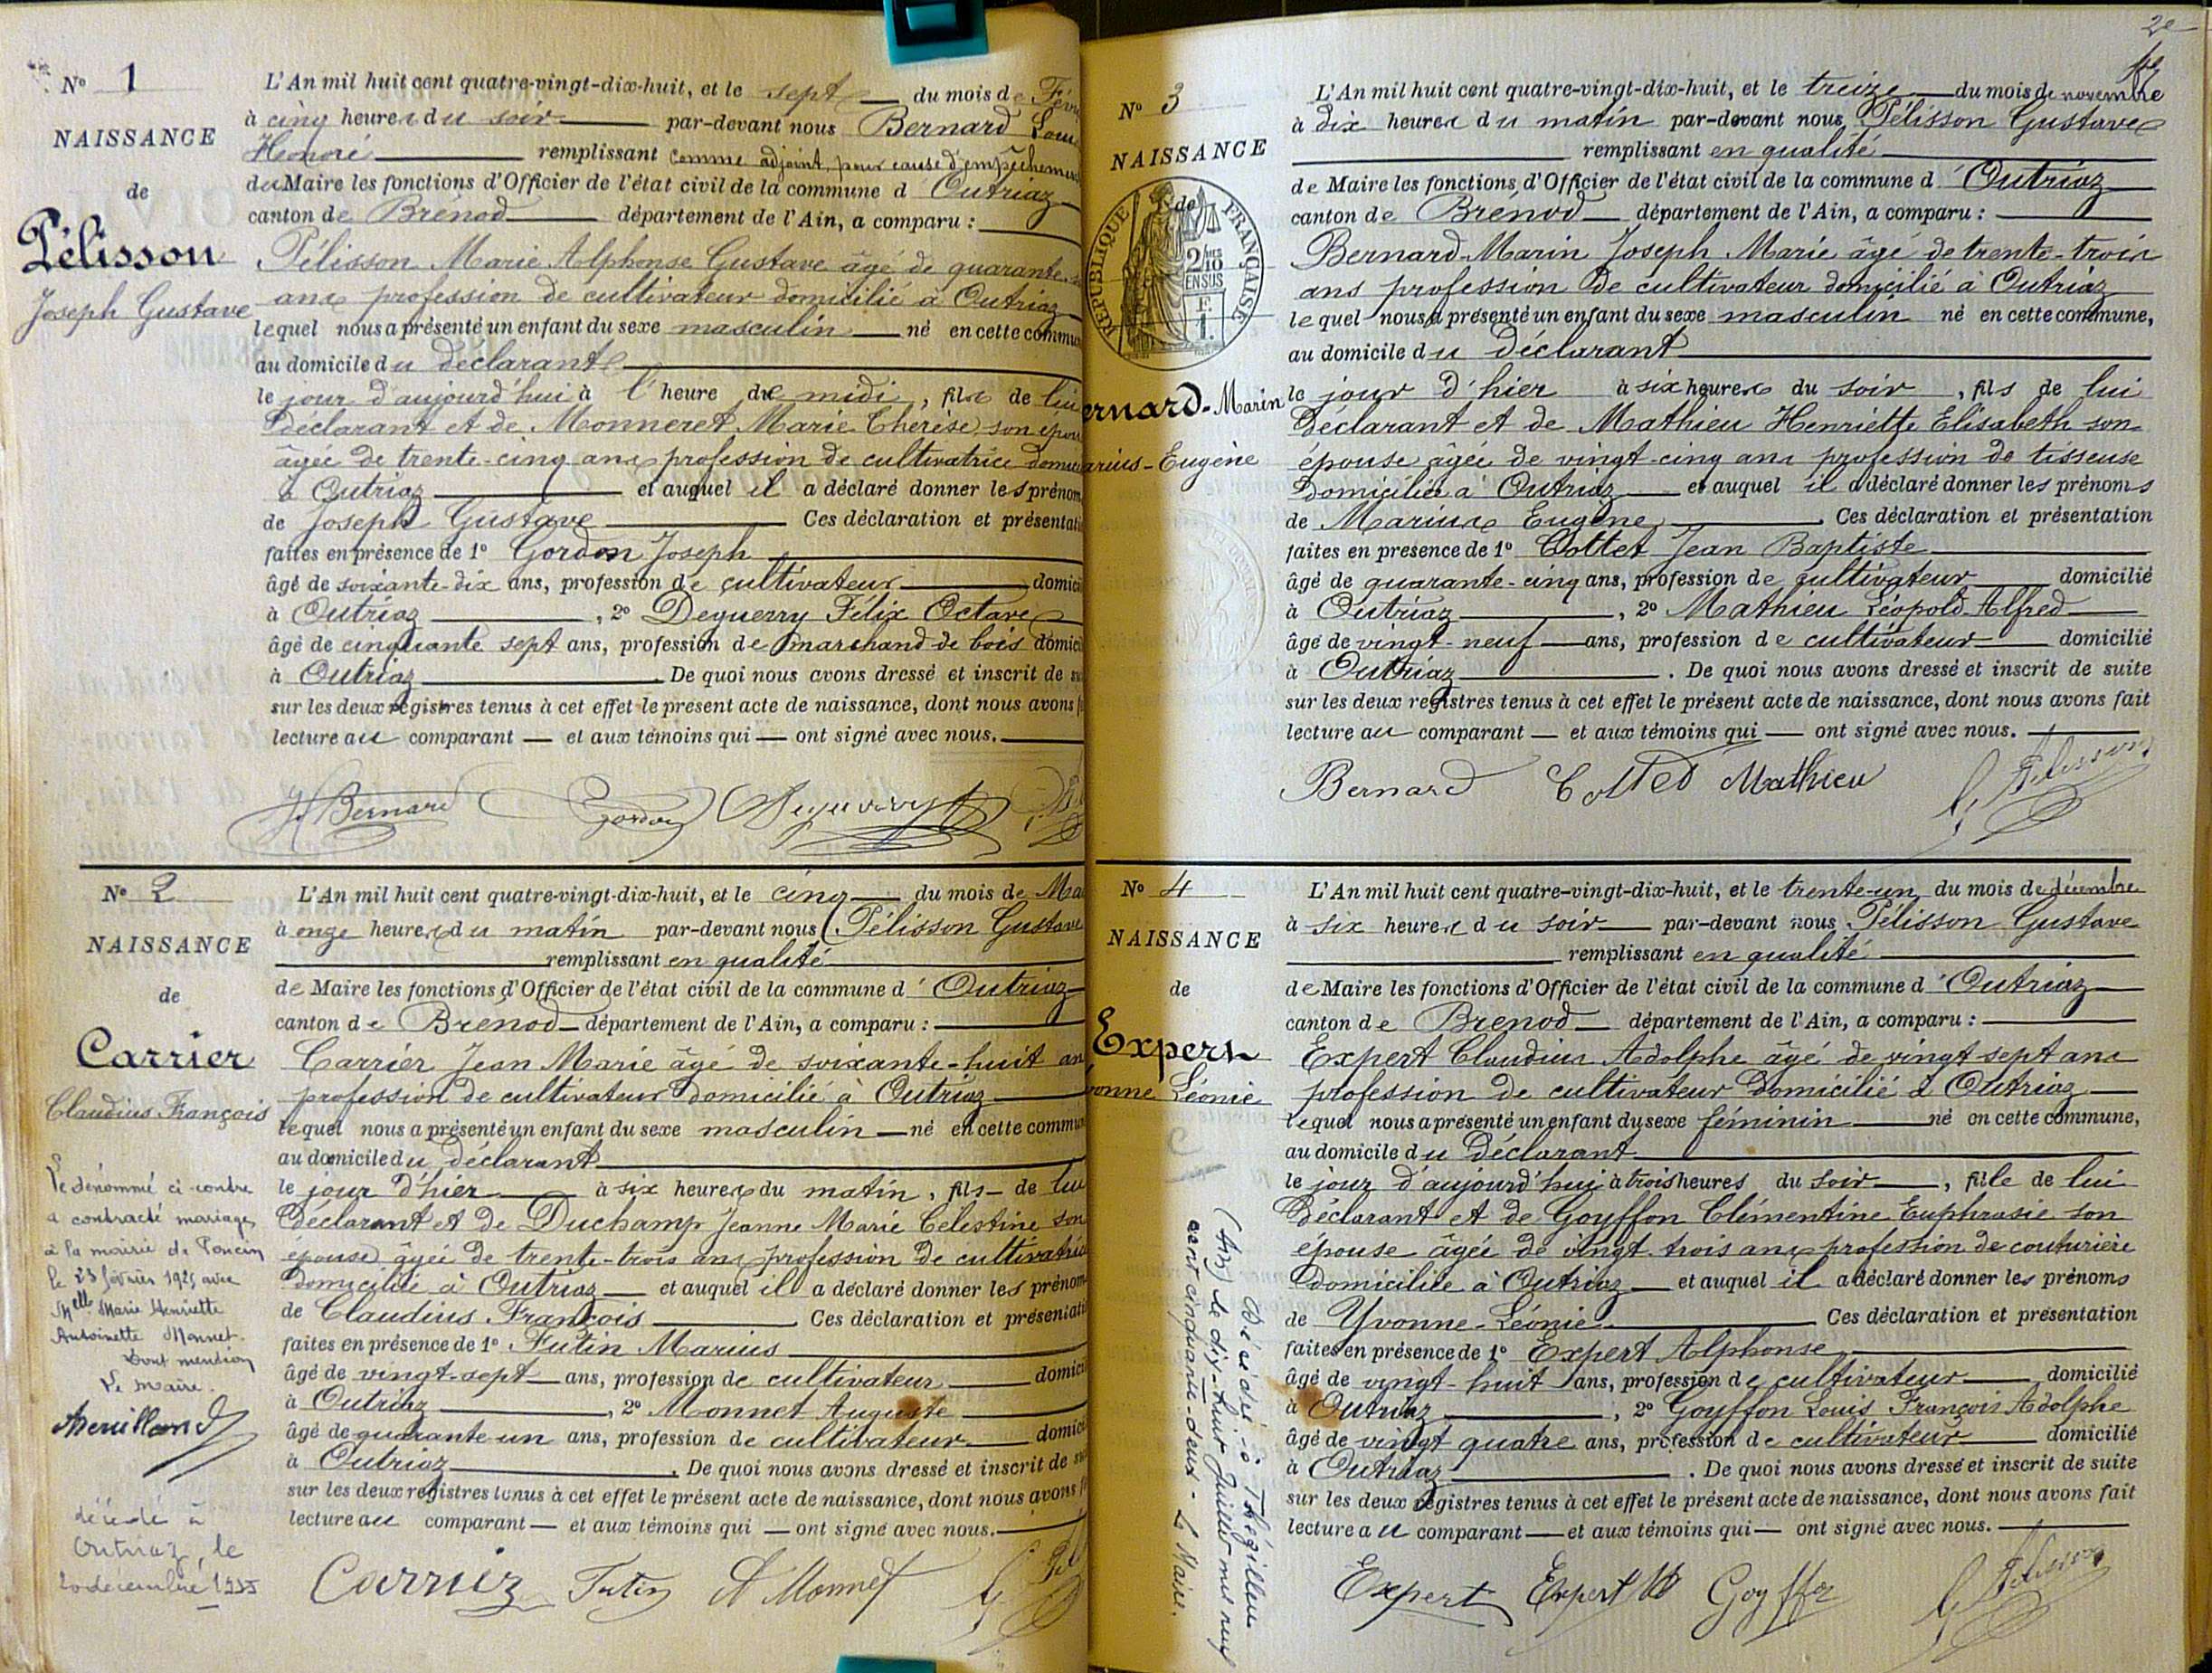 Nº 1
NAISSANCE
de
Pélisson
Joseph Gustave
L'An mil huit cent quatre-vingt-dix-huit, et le sept du mois de
à cinq heures du soir par-devant nous Bernard
Honoré remplissant comme adjoint, pour cause d'empêchement
du Maire les fonctions d'Officier de l'état civil de la commune d'Outriaz
canton de Brénod département de l'Ain, a comparu :
Pélisson Marie Alphonse Gustave âgé de quarante
ans profession de cultivateur domicilié à Outriaz
lequel nous a présenté un enfant du sexe masculin né en cette
au domicile du déclarant
le jour d'aujourd'hui à l'heure de midi, fils de lui
déclarant et de Monneret Marie Thérèse son
âgée de trente-cinq ans profession de cultivatrice
à Outriaz et auquel il a déclaré donner les prénom
de Joseph Gustave Ces déclaration et
faites en présence de 1º Gordon Joseph
âgé de soixante-dix ans, profession de cultivateur
à Outriaz, 2º Deguerry Félix Octave
âgé de cinquante sept ans, profession de marchand de bois
à Outriaz. De quoi nous avons dressé et inscrit de
sur les deux registres tenus à cet effet le présent acte de naissance, dont nous avons
lecture au comparant et aux témoins qui ont signé avec nous.
H. Bernard Gordon Deguerry
Nº 2
NAISSANCE
de
Carrier
Claudius François
Le dénommé ci-contre
a contracté mariage
à la mairie de Poncin
le 23 février 1925 avec
Melle Marie Henriette
Antoinette Monnet.
Dont mention
Le maire.
décédé à
Outriaz, le
20 décembre
L'An mil huit cent quatre-vingt-dix-huit, et le cinq du mois de
à onze heures du matin par-devant nous Pélisson Gustave
remplissant en qualité
de Maire les fonctions d'Officier de l'état civil de la commune d'Outriaz
canton de Brénod département de l'Ain, a comparu :
Carrier Jean Marie âgé de soixante-huit an
profession de cultivateur domicilié à Outriaz
lequel nous a présenté un enfant du sexe masculin né en cette
au domicile du déclarant
le jour d'hier à six heures du matin, fils de lui
déclarant et de Duchamp Jeanne Marie Célestine son
épouse âgée de trente-trois ans profession de cultivatrice
domiciliée à Outriaz et auquel il a déclaré donner les prénom
de Claudius François Ces déclaration et
faites en présence de 1º Futin Marius
âgé de vingt-sept ans, profession de cultivateur
à Outriaz, 2º Monnet Auguste
âgé de quarante un ans, profession de cultivateur
à Outriaz. De quoi nous avons dressé et inscrit de
sur les deux registres tenus à cet effet le présent acte de naissance, dont nous avons
lecture au comparant et aux témoins qui ont signé avec nous.
Carrier Futin A Monnet
Nº 3
NAISSANCE
de
RÉPUBLIQUE FRANÇAISE
ernard-Marin
arius-Eugène
L'An mil huit cent quatre-vingt-dix-huit, et le treize du mois de novembre
à dix heures du matin par-devant nous Pélisson Gustave
remplissant en qualité
de Maire les fonctions d'Officier de l'état civil de la commune d'Outriaz
canton de Brénod département de l'Ain, a comparu :
Bernard-Marin Joseph Marie âgé de trente-trois
ans profession de cultivateur domicilié à Outriaz
lequel nous a présenté un enfant du sexe masculin né en cette commune,
au domicile du déclarant
le jour d'hier à six heures du soir, fils de lui
déclarant et de Mathieu Henriette Elisabeth son
épouse âgée de vingt-cinq ans profession de tisseuse
domiciliée à Outriaz et auquel il a déclaré donner les prénoms
de Marius Eugène. Ces déclaration et présentation
faites en présence de 1º Cottet Jean Baptiste
âgé de quarante-cinq ans, profession de cultivateur domicilié
à Outriaz, 2º Mathieu Léopold Alfred
âgé de vingt-neuf ans, profession de cultivateur domicilié
à Outriaz. De quoi nous avons dressé et inscrit de suite
sur les deux registres tenus à cet effet le présent acte de naissance, dont nous avons fait
lecture au comparant et aux témoins qui ont signé avec nous.
Bernard Cottet Mathieu G. Pélisson
Nº 4
NAISSANCE
de
Expert
vonne Léonie
Décédée à Thézillieu
(Ain) le dix-huit Juillet mil neuf
cent cinquante-deux - Le Maire.
L'An mil huit cent quatre-vingt-dix-huit, et le trente-un du mois de décembre
à six heures du soir par-devant nous Pélisson Gustave
remplissant en qualité
de Maire les fonctions d'Officier de l'état civil de la commune d'Outriaz
canton de Brénod département de l'Ain, a comparu :
Expert Claudius Adolphe âgé de vingt sept ans
profession de cultivateur domicilié à Outriaz
lequel nous a présenté un enfant du sexe féminin né en cette commune,
au domicile du déclarant
le jour d'aujourd'hui à trois heures du soir, fille de lui
déclarant et de Goyffon Clémentine Euphrasie son
épouse âgée de vingt trois ans profession de couturière
domiciliée à Outriaz et auquel il a déclaré donner les prénoms
de Yvonne-Léonie. Ces déclaration et présentation
faites en présence de 1º Expert Alphonse
âgé de vingt-huit ans, profession de cultivateur domicilié
à Outriaz, 2º Goyffon Louis François Adolphe
âgé de vingt quatre ans, profession de cultivateur domicilié
à Outriaz. De quoi nous avons dressé et inscrit de suite
sur les deux registres tenus à cet effet le présent acte de naissance, dont nous avons fait
lecture au comparant et aux témoins qui ont signé avec nous.
Expert Expert Goyffon G. Pélisson